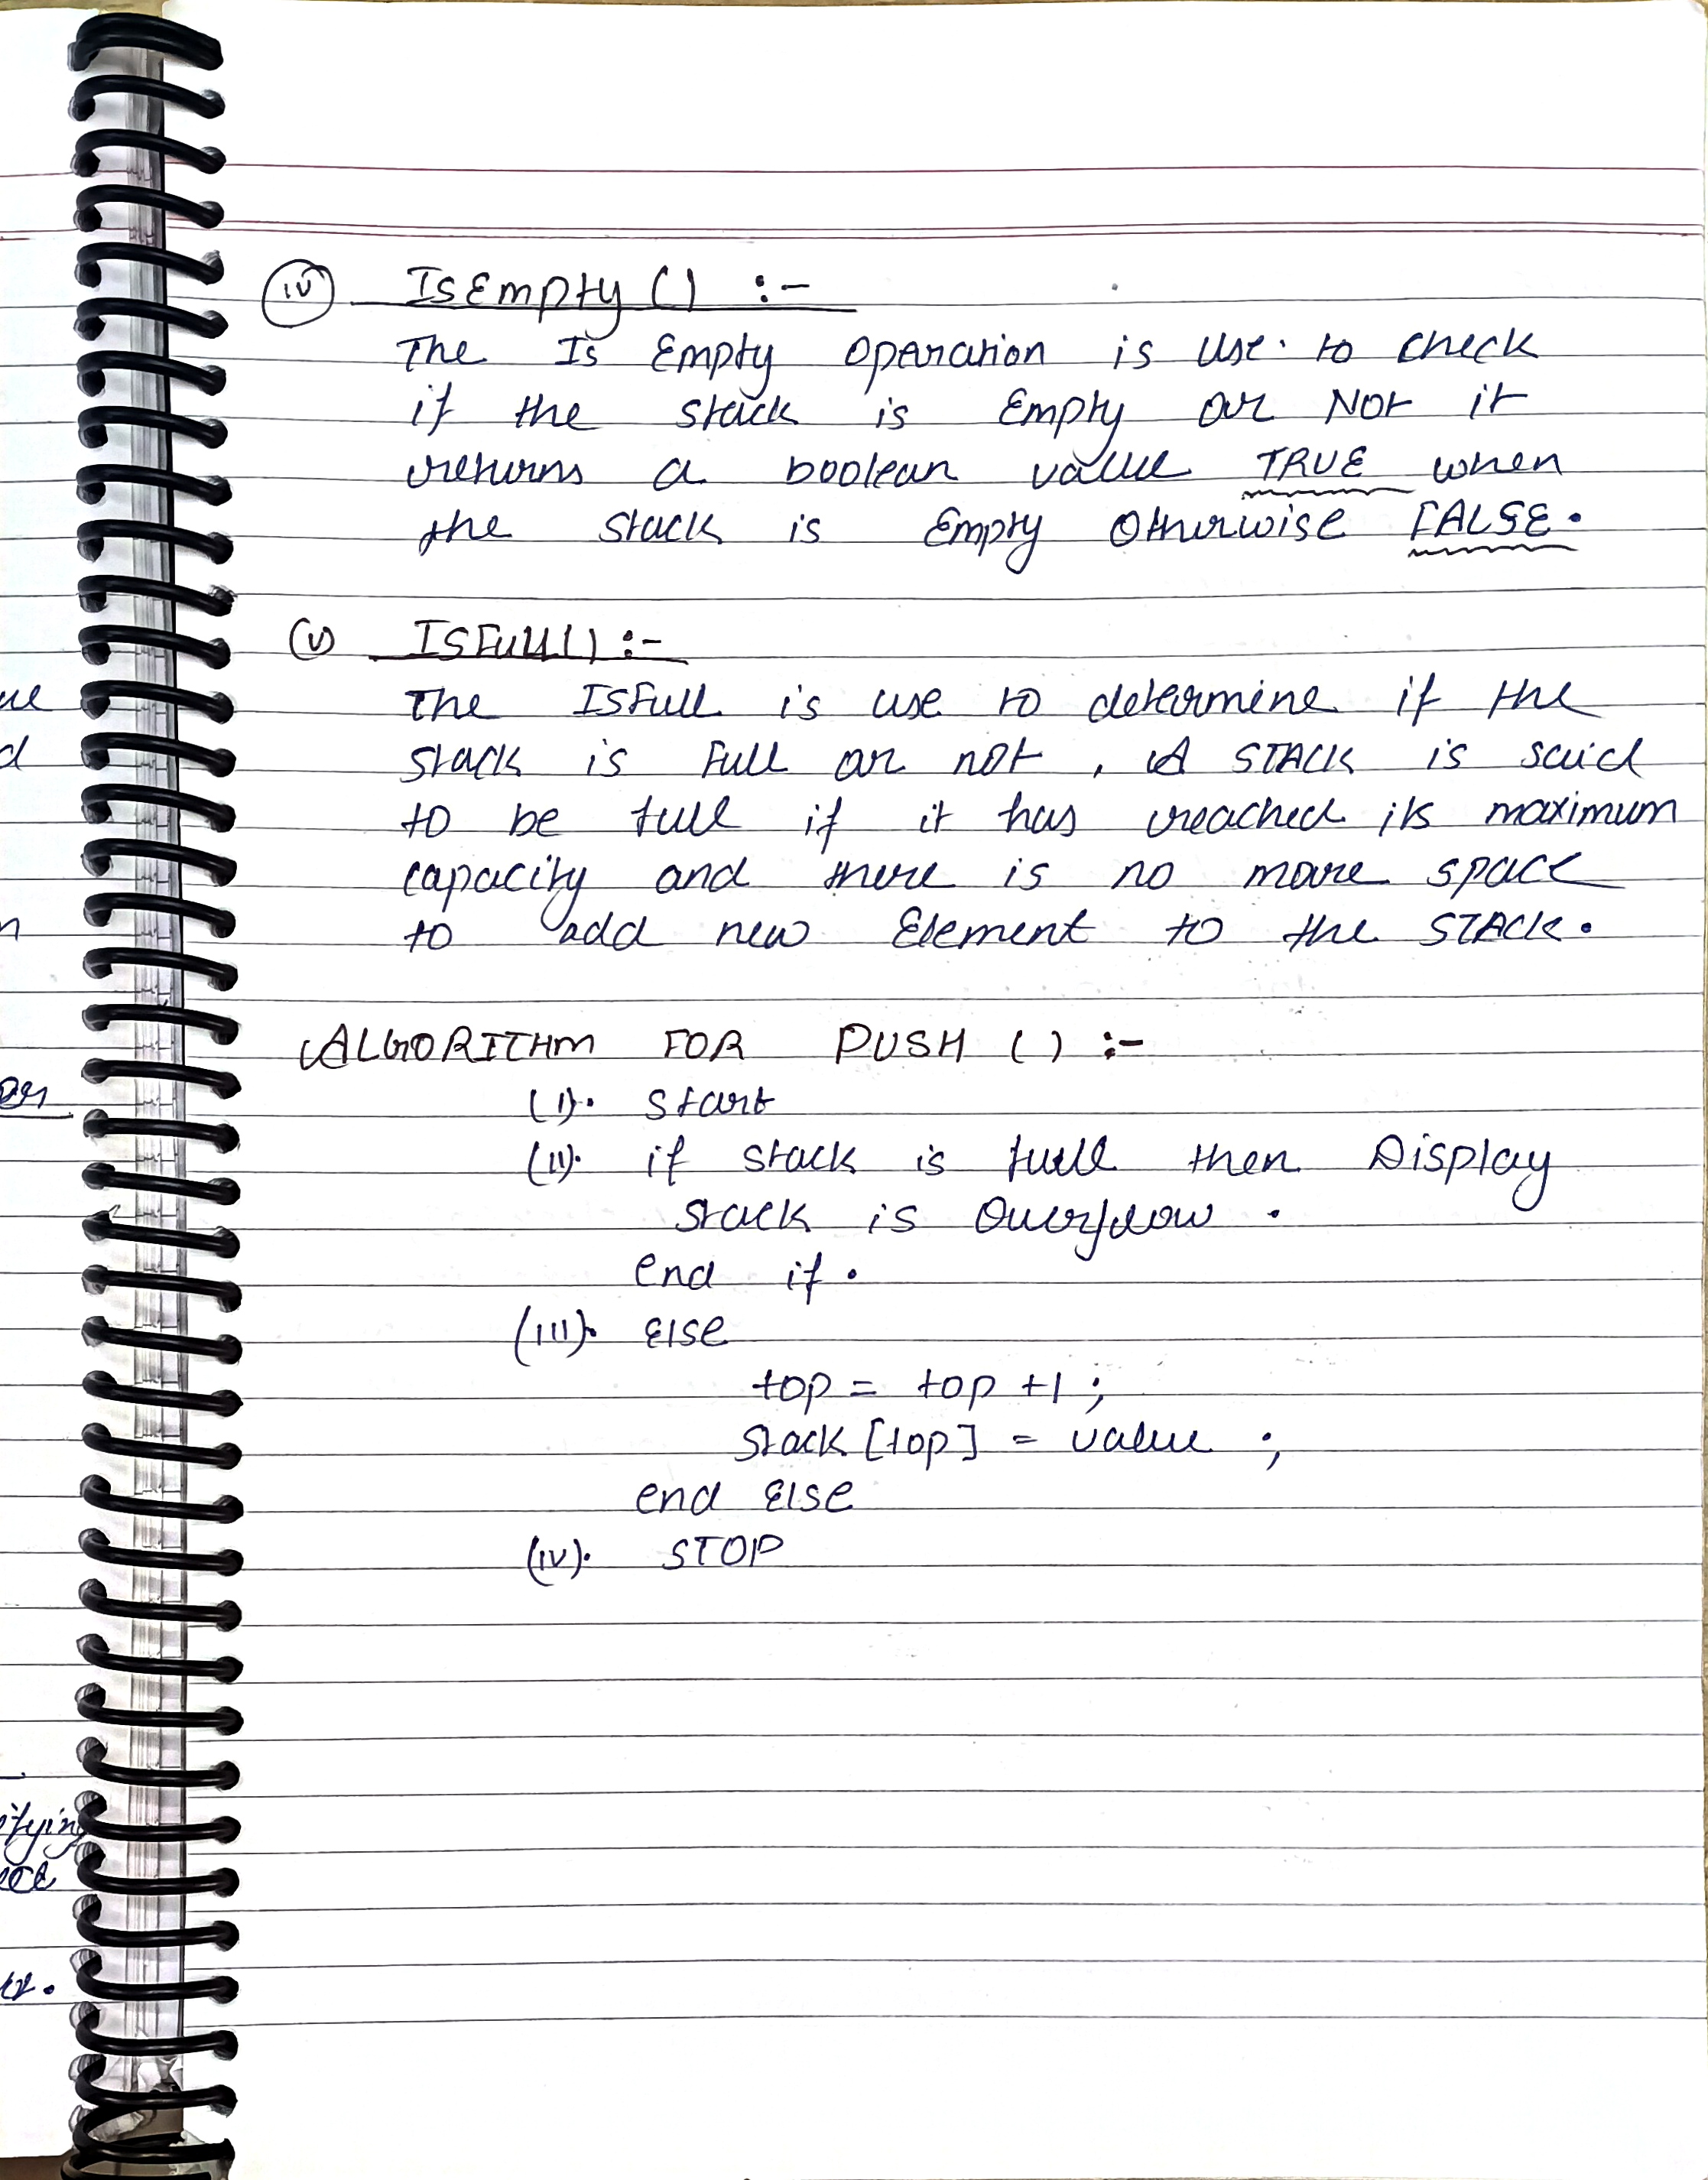 (iv) IsEmpty () :-
The Is Empty operation is use. to check
if the stack is Empty or Not it
returns a boolean value TRUE when
the stack is Empty Otherwise FALSE.
(v) IsFull() :-
The IsFull is use to determine if the
stack is Full or not , A STACK is said
to be full if it has reached its maximum
capacity and there is no more space
to add new Element to the STACK.
ALGORITHM FOR PUSH () :-
(I). Start
(II). if stack is full then Display
stack is Overflow .
end if .
(III). Else
top = top +1 ;
Stack [top] = value ;
end Else
(IV). STOP